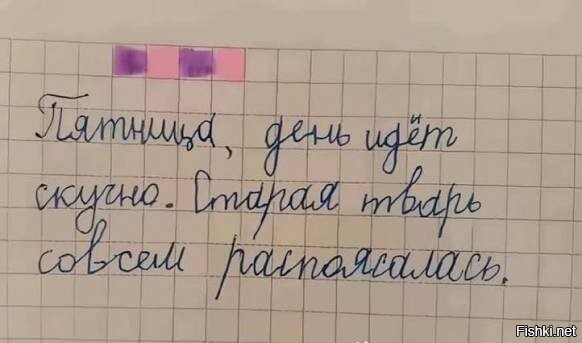 Пятница, день идёт
скучно. Старая тварь
совсем распоясалась.
Fishki.net